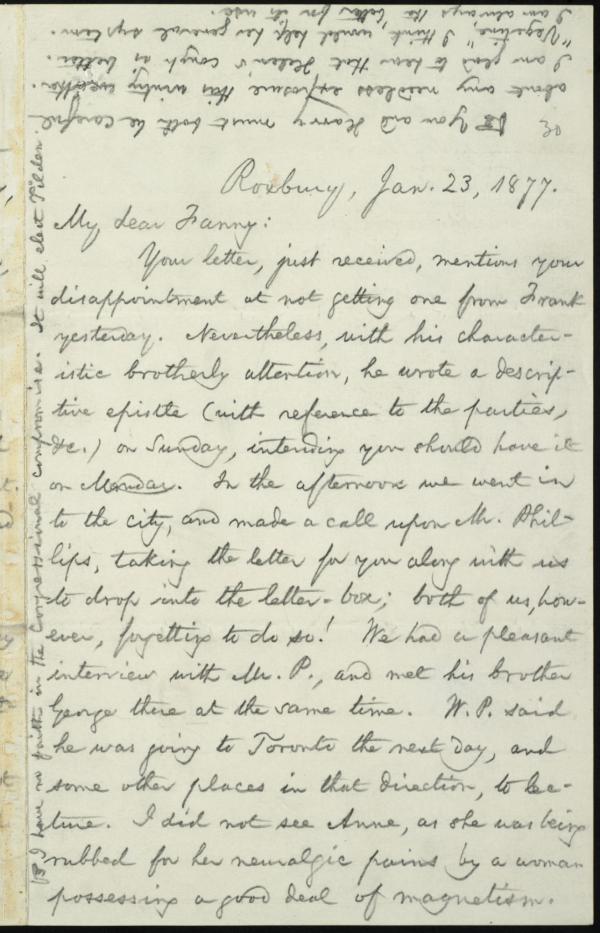 Roxbury, Jan. 23, 1877.
My dear Fanny:
Your letter, just received, mentions your
disappointment at not getting one from Frank
yesterday. Nevertheless, with his character-
istic brotherly attention, he wrote a descrip-
tive epistle (with reference to the parties,
&c.) on Sunday, intending you should have it
on Monday. In the afternoon we went in
to the city, and made a call upon Mr. Phil-
lips, taking the letter for you along with us
to drop into the letter-box; both of us, how-
ever, forgetting to do so! We had a pleasant
interview with Mr. P., and met his brother
George there at the same time. W. P. said
he was going to Toronto the next day, and
some other places in that direction, to lec-
ture. I did not see Anne, as she was being
rubbed for her neuralgic pains by a woman
possessing a good deal of magnetism.
☞ I have no faith in the Congressional compromise. It will elect Tilden.
☞ You and Harry must both be careful
about any needless exposure this wintry weather.
I am glad to hear that Helen's cough is better.
"Vegetine," I think, would help her general system.
I am always the better for its use.